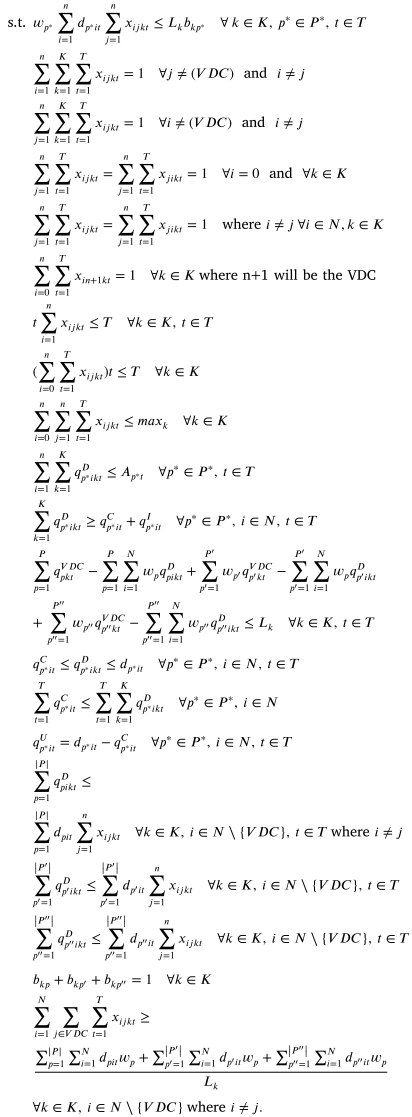 s.t. $w_{p^*} \sum_{i=1}^{n} d_{p^*it} \sum_{j=1}^{n} x_{ijkt} \le L_k b_{kp^*} \quad \forall\, k \in K,\, p^* \in P^*,\, t \in T$
$\sum_{i=1}^{n} \sum_{k=1}^{K} \sum_{t=1}^{T} x_{ijkt} = 1 \quad \forall j \ne (VDC) \text{ and } i \ne j$
$\sum_{j=1}^{n} \sum_{k=1}^{K} \sum_{t=1}^{T} x_{ijkt} = 1 \quad \forall i \ne (VDC) \text{ and } i \ne j$
$\sum_{j=1}^{n} \sum_{t=1}^{T} x_{ijkt} = \sum_{j=1}^{n} \sum_{t=1}^{T} x_{jikt} = 1 \quad \forall i = 0 \text{ and } \forall k \in K$
$\sum_{j=1}^{n} \sum_{t=1}^{T} x_{ijkt} = \sum_{j=1}^{n} \sum_{t=1}^{T} x_{jikt} = 1 \quad \text{where } i \ne j\, \forall i \in N, k \in K$
$\sum_{i=0}^{n} \sum_{t=1}^{T} x_{in+1kt} = 1 \quad \forall k \in K \text{ where n+1 will be the VDC}$
$t \sum_{i=1}^{n} x_{ijkt} \le T \quad \forall k \in K,\, t \in T$
$(\sum_{i=0}^{n} \sum_{t=1}^{T} x_{ijkt}) t \le T \quad \forall k \in K$
$\sum_{i=0}^{n} \sum_{j=1}^{n} \sum_{t=1}^{T} x_{ijkt} \le max_k \quad \forall k \in K$
$\sum_{i=1}^{n} \sum_{k=1}^{K} q^{D}_{p^*ikt} \le A_{p^*t} \quad \forall p^* \in P^*,\, t \in T$
$\sum_{k=1}^{K} q^{D}_{p^*ikt} \ge q^{C}_{p^*it} + q^{I}_{p^*it} \quad \forall p^* \in P^*,\, i \in N,\, t \in T$
$\sum_{p=1}^{P} q^{VDC}_{pkt} - \sum_{p=1}^{P} \sum_{i=1}^{N} w_p q^{D}_{pikt} + \sum_{p'=1}^{P'} w_{p'} q^{VDC}_{p'kt} - \sum_{p'=1}^{P'} \sum_{i=1}^{N} w_p q^{D}_{p'ikt}$
$+ \sum_{p''=1}^{P''} w_{p''} q^{VDC}_{p''kt} - \sum_{p''=1}^{P''} \sum_{i=1}^{N} w_{p''} q^{D}_{p''ikt} \le L_k \quad \forall k \in K,\, t \in T$
$q^{C}_{p^*it} \le q^{D}_{p^*ikt} \le d_{p^*it} \quad \forall p^* \in P^*,\, i \in N,\, t \in T$
$\sum_{t=1}^{T} q^{C}_{p^*it} \le \sum_{t=1}^{T} \sum_{k=1}^{K} q^{D}_{p^*ikt} \quad \forall p^* \in P^*,\, i \in N$
$q^{U}_{p^*it} = d_{p^*it} - q^{C}_{p^*it} \quad \forall p^* \in P^*,\, i \in N,\, t \in T$
$\sum_{p=1}^{|P|} q^{D}_{pikt} \le$
$\sum_{p=1}^{|P|} d_{pit} \sum_{j=1}^{n} x_{ijkt} \quad \forall k \in K,\, i \in N \setminus \{VDC\},\, t \in T \text{ where } i \ne j$
$\sum_{p'=1}^{|P'|} q^{D}_{p'ikt} \le \sum_{p'=1}^{|P'|} d_{p'it} \sum_{j=1}^{n} x_{ijkt} \quad \forall k \in K,\, i \in N \setminus \{VDC\},\, t \in T$
$\sum_{p''=1}^{|P''|} q^{D}_{p''ikt} \le \sum_{p''=1}^{|P''|} d_{p''it} \sum_{j=1}^{n} x_{ijkt} \quad \forall k \in K,\, i \in N \setminus \{VDC\},\, t \in T$
$b_{kp} + b_{kp'} + b_{kp''} = 1 \quad \forall k \in K$
$\sum_{i=1}^{N} \sum_{j \in VDC} \sum_{t=1}^{T} x_{ijkt} \ge$
$\frac{\sum_{p=1}^{|P|} \sum_{i=1}^{N} d_{pit} w_p + \sum_{p'=1}^{|P'|} \sum_{i=1}^{N} d_{p'it} w_p + \sum_{p''=1}^{|P''|} \sum_{i=1}^{N} d_{p''it} w_p}{L_k}$
$\forall k \in K,\, i \in N \setminus \{VDC\} \text{ where } i \ne j.$